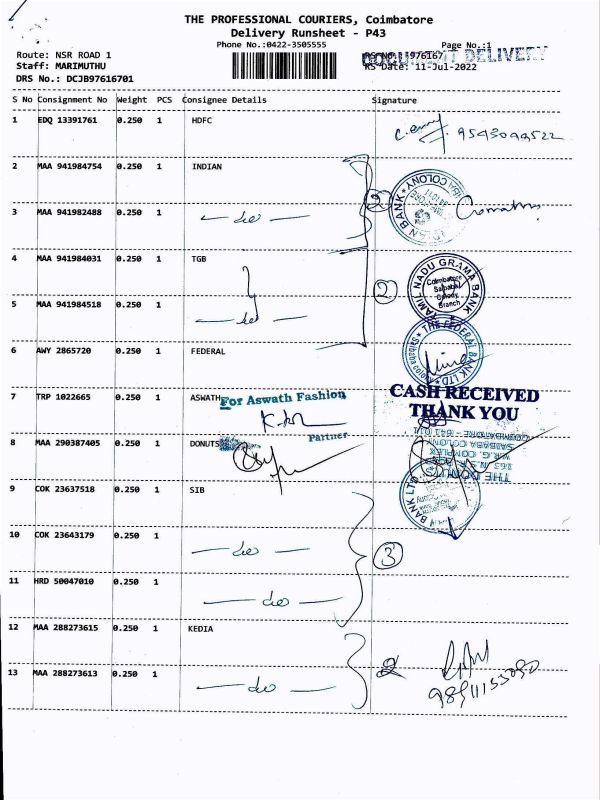 THE PROFESSIONAL COURIERS, Coimbatore
Delivery Runsheet - P43
Phone No.:0422-3505555
Page No.:1
Route: NSR ROAD 1
DOCUMENT DELIVERY
Staff: MARIMUTHU
RS Date: 11-Jul-2022
DRS No.: DCJB97616701
S No Consignment No Weight PCS Consignee Details Signature
1 EDQ 13391761 0.250 1 HDFC
2 MAA 941984754 0.250 1 INDIAN
3 MAA 941982488 0.250 1 — do —
4 MAA 941984031 0.250 1 TGB
2
TAMIL NADU GRAMA BANK
Coimbatore
Saibaba
Colony
Branch
5 MAA 941984518 0.250 1 — do —
THE FEDERAL BANK LTD
6 AWY 2865720 0.250 1 FEDERAL
7 TRP 1022665 0.250 1 ASWATH
For Aswath Fashion
Partner
CASH RECEIVED
THANK YOU
8 MAA 290387405 0.250 1 DONUTS
9 COK 23637518 0.250 1 SIB
BANK LTD
10 COK 23643179 0.250 1 — do —
3
11 HRD 50047010 0.250 1 — do —
12 MAA 288273615 0.250 1 KEDIA
2
13 MAA 288273613 0.250 1 — do —